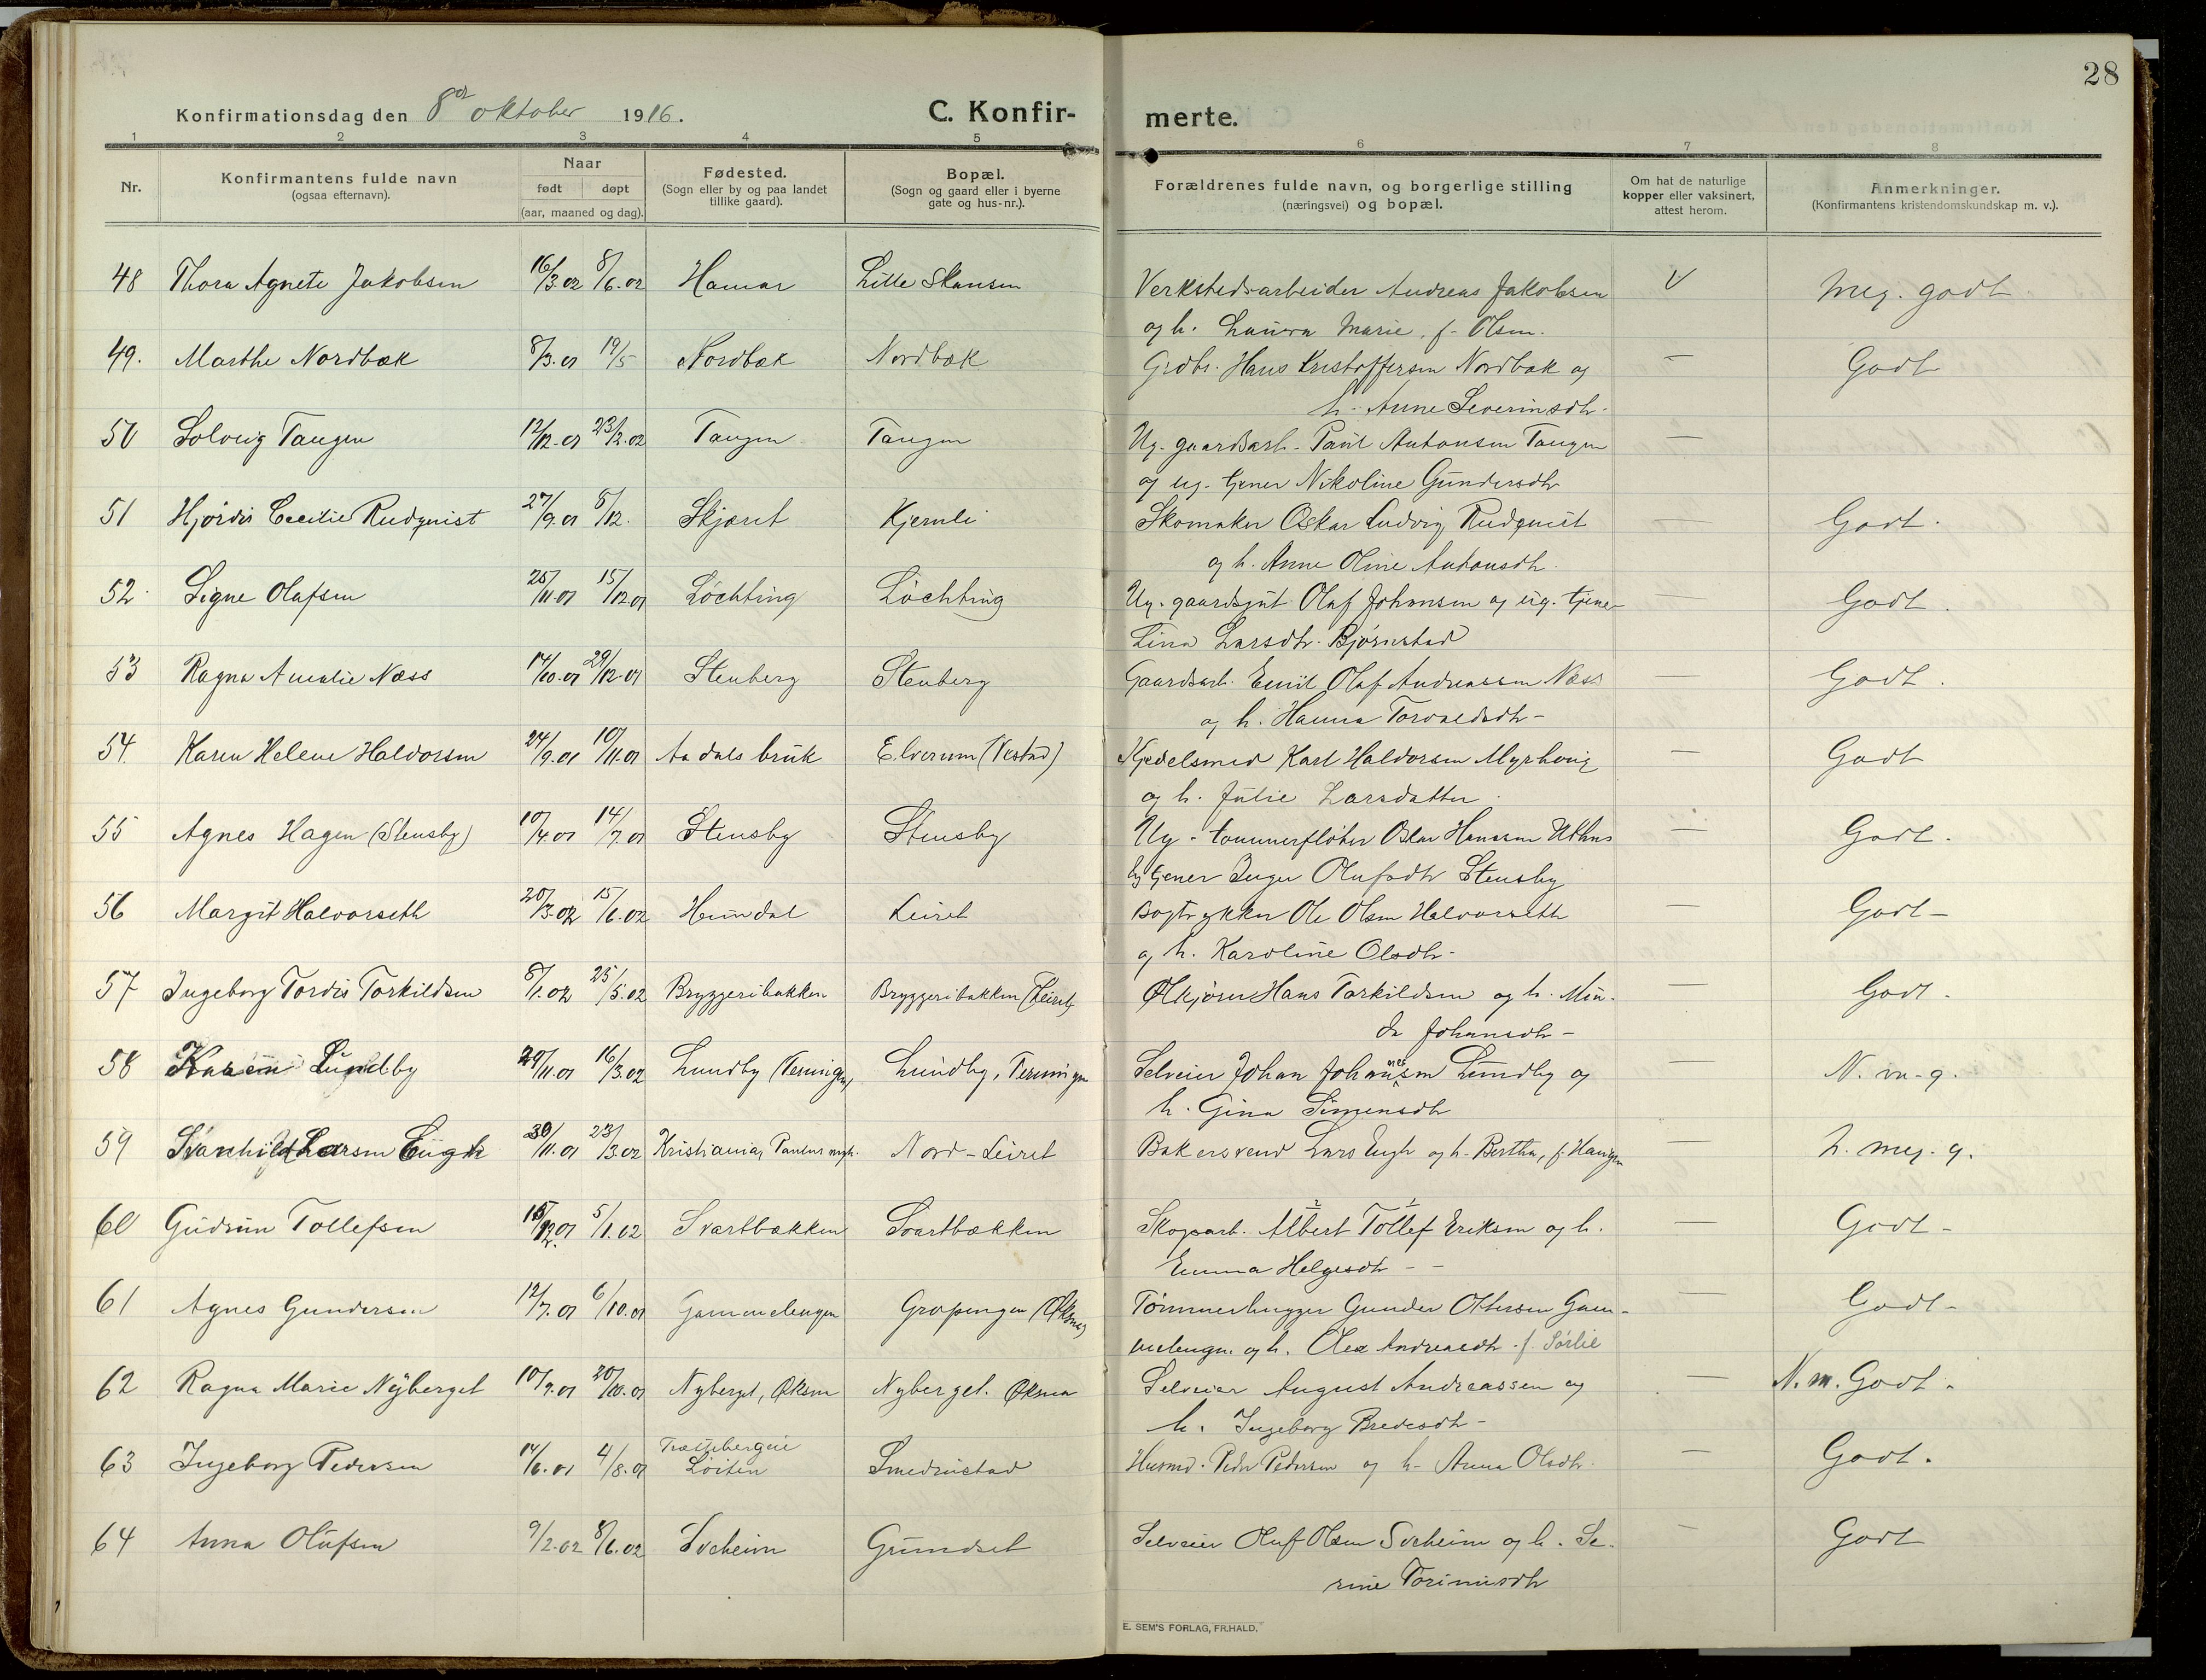 28
Konfirmationsdag den 8de oktober 1916.
C. Konfir-
merte.
1 2 3 4 5 6 7 8
Nr.
Konfirmantens fulde navn
(ogsaa efternavn).
Naar
født døpt
(aar, maaned og dag).
Fødested.
(Sogn eller by og paa landet
tillike gaard).
Bopæl.
(Sogn og gaard eller i byerne
gate og hus-nr.).
Forældrenes fulde navn, og borgerlige stilling
(næringsvei) og bopæl.
Om hat de naturlige
kopper eller vaksinert,
attest herom.
Anmerkninger.
(Konfirmantens kristendomskundskap m. v.).
48 Thora Agnete Jakobsen 16/3.02 8/6.02 Hamar Lille Skansen Verkstedsarbeider Andreas Jakobsen V Meg. godt
og h. Laura Marie, f. Olsen.
49. Marthe Nordbæk 8/3.01 19/5 Nordbæk Nordbæk Grdbr. Hans Kristoffersen Nordbæk og — Godt
h. Anne Severinsdtr.
50 Solveig Tangen 12/12.01 23/2.02 Tangen Tangen Ug. gaardsarb. Paul Antonsen Tangen —
og ug. tjener Nikoline Gundersdtr
51 Hjördis Cecilie Rudquist 27/9.01 8/12. Skjæret Kjernli Skomaker Oskar Ludvig Rudquist — Godt.
og h. Anne Oline Antonsdtr.
52 Signe Olafsen 25/11.01 15/12.01 Löchting Löchting Ug. gaardsgut Olaf Johansen og ug. tjener — Godt.
Lina Larsdtr. Bjørnstad
53 Ragna Amalie Næss 14/10.01 29/12.01 Stenberg Stenberg Gaardsarb. Emil Olaf Andreassen Næss — Godt.
og h. Hanna Torvaldsdtr-
54 Karen Helene Haldorsen 24/9.01 10/11.01 Aadals bruk Elverum (Vestad) Kjedelsmed Karl Haldorsen Myrhoug — Godt
og h. Julie Larsdatter.
55 Agnes Hagen (Stensby) 10/4.01 14/7.01 Stensby Stensby Ug. tømmerfløter Oskar Hansen — Godt.
tjener Inger Olufsdtr Stensby
56 Margit Halvorseth 20/3.02 15/6.02 Heimdal Leiret Bogtrykker Ole Olsen Halvorseth — Godt-
og h. Karoline Olsdtr-
57 Ingeborg Tordis Torkildsen 8/1.02 25/5.02 Bryggeribakken Bryggeribakken (Leiret) Ølkjører Hans Torkildsen og h. Min- — Godt.
da Johansdtr-
58 Karen Lundby 29/11.01 16/3.02 Lundby (Terningen) Lundby, Terningen Selveier Johan Johannesen Lundby og — N. m. g.
h. Gina Simensdtr
59 Svanhild Larsen Eugh 30/11.01 23/3.02 Kristiania, Paulus mgh. Nord-Leiret Bakersvend Lars Engh og h. Bertha, f. Haugen — N. meg. g.
60 Gudrun Tollefsen 15/12.01 5/1.02 Svartbækken Svartbækken Skogsarb. Albert Tollef Eriksen og h. — Godt-
Emma Helgesdtr - -
61 Agnes Gundersen 12/7.01 6/10.01 Gammelengen Gropengen (Øksna) Tømmerhugger Gunder Ottersen Gam- — Godt-
melengen og h. Olea Andreasdtr. f. Sørlie
62 Ragna Marie Nyberget 10/9.01 20/10.01 Nyberget, Øksna Nyberget. Øksna Selveier August Andreassen og — N.m. Godt.
h. Ingeborg Bredesdtr-
63 Ingeborg Pedersen 14/6.01 4/8.01 Løiten Smedsustad Husmd. Peder Pedersen og h. Anna Olsdtr. — Godt.
64 Anna Olufsen 9/2.02 8/6.02 Soheim Grundset Selveier Oluf Olsen Soheim og h. Se- — Godt
rine
E. SEM'S FORLAG, FR.HALD.